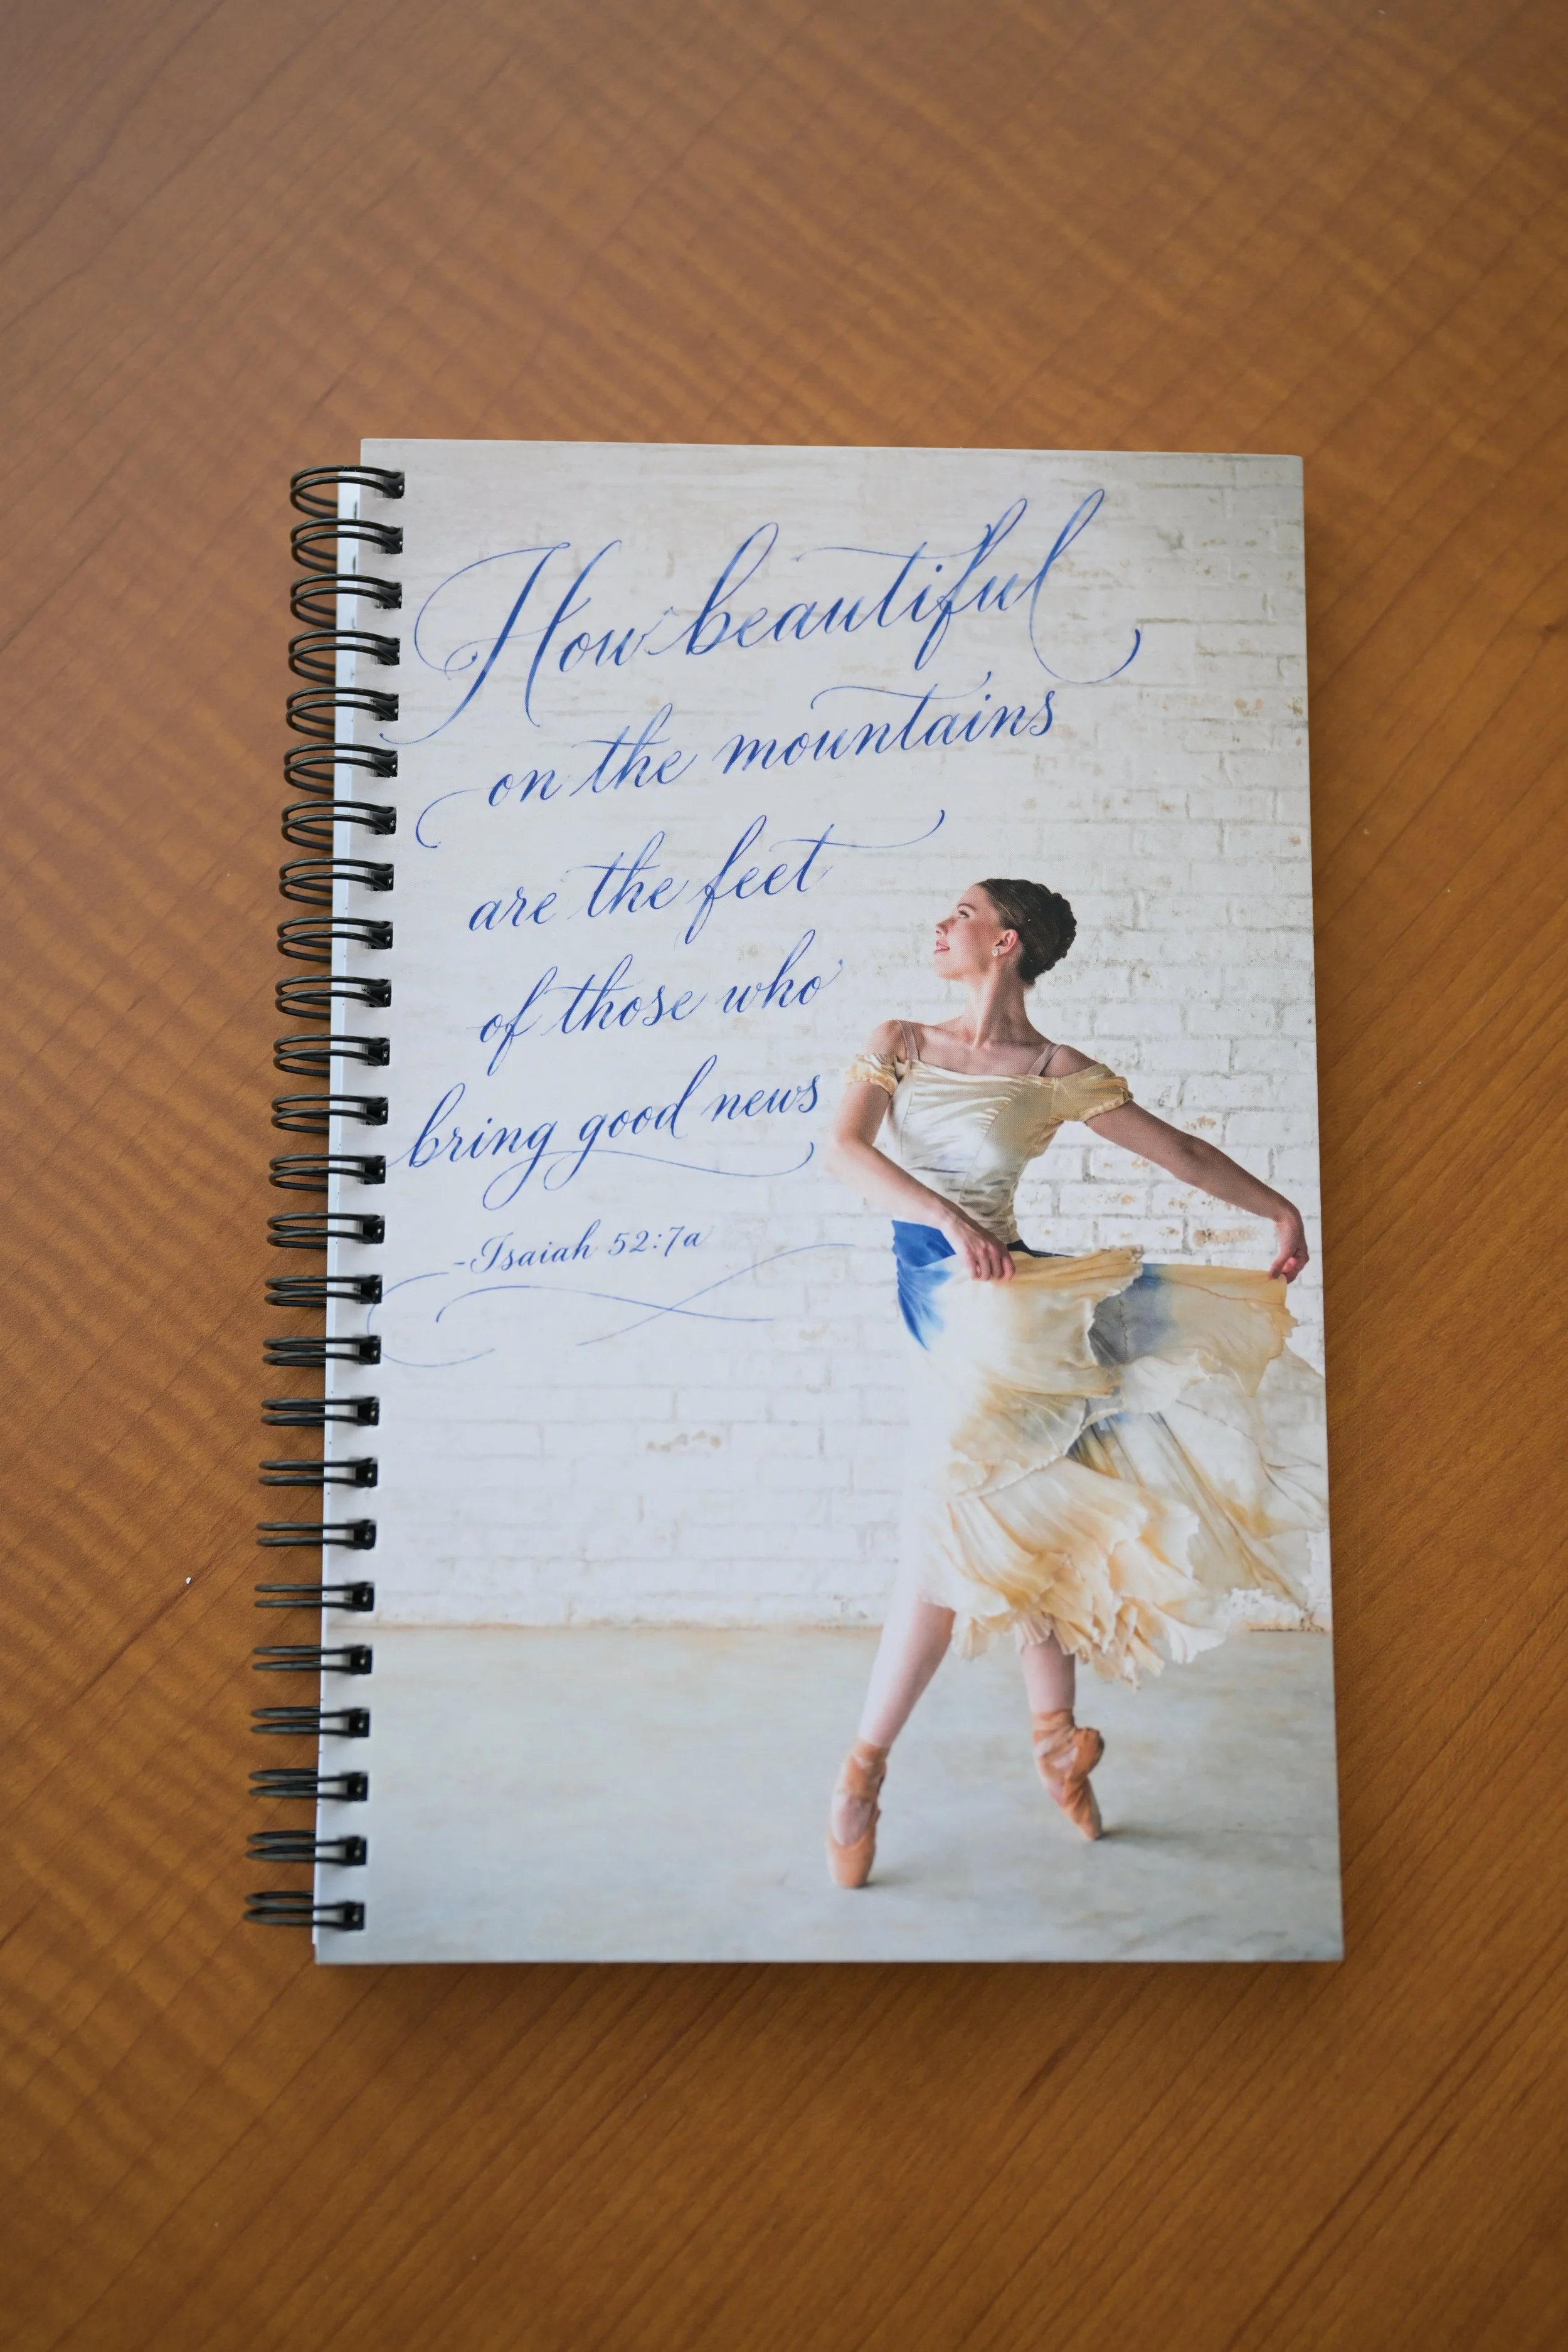 How beautiful
on the mountains
are the feet
of those who
bring good news
-Isaiah 52:7a